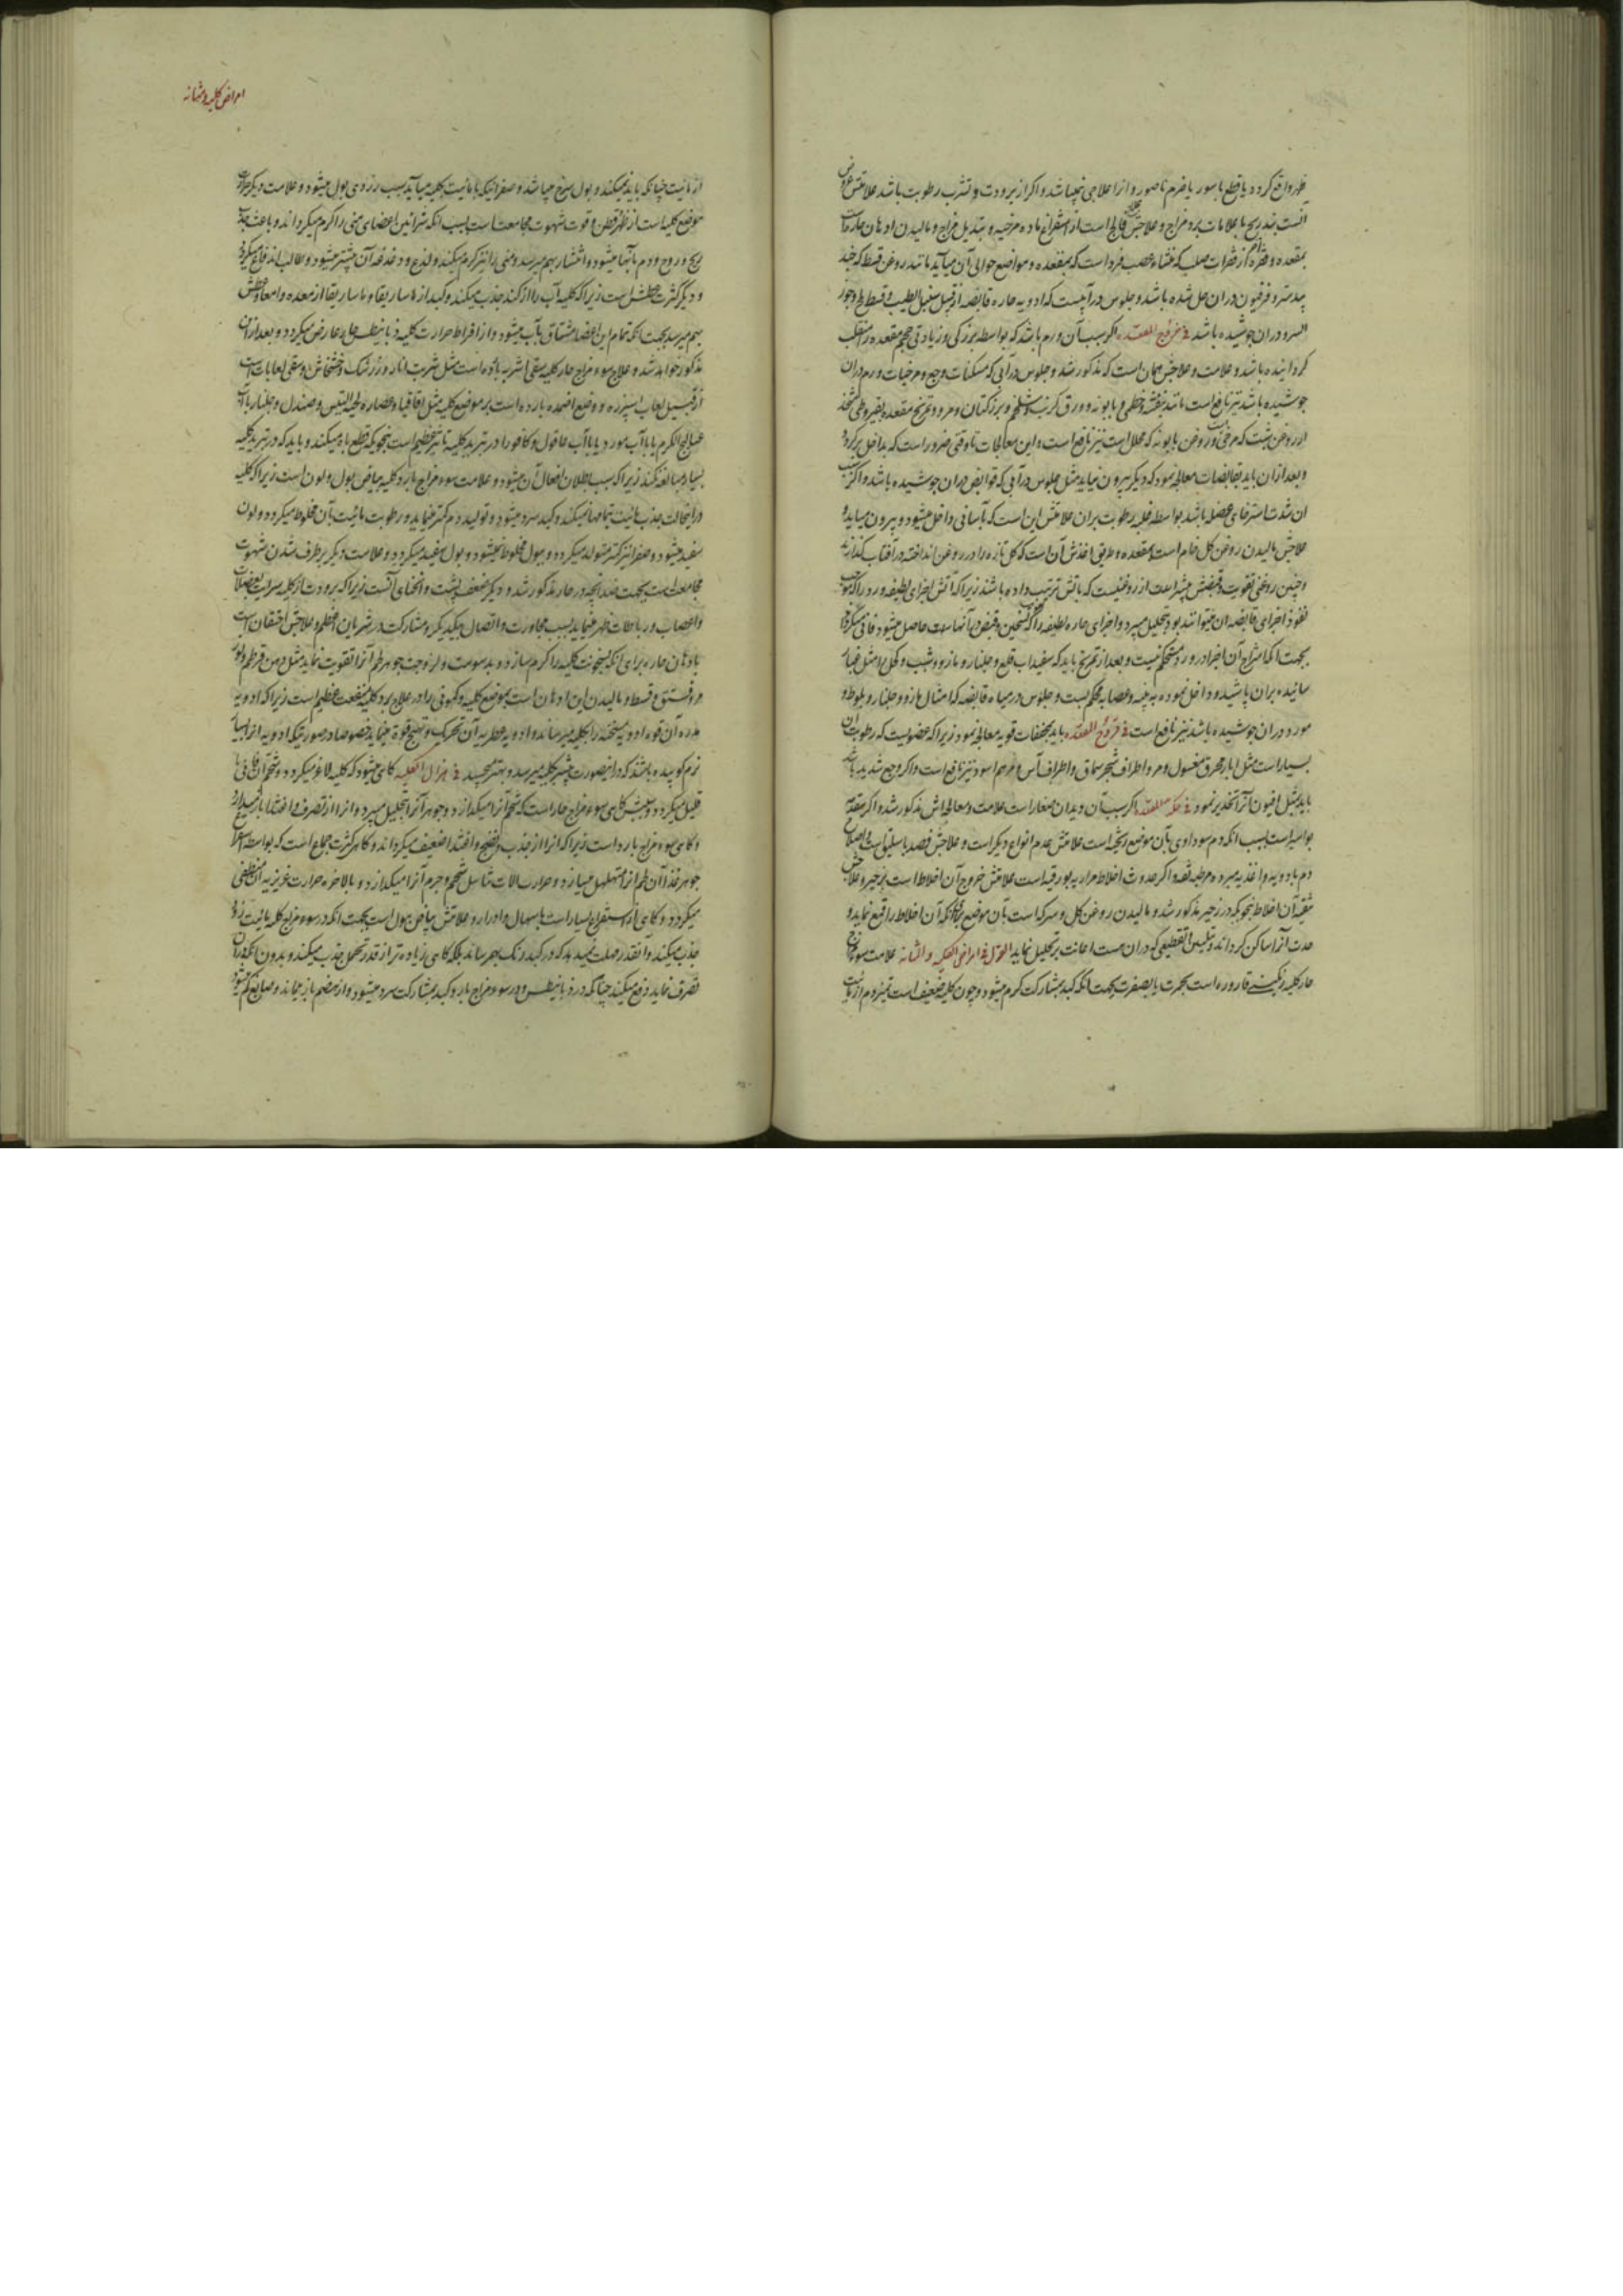 ظهر واقع کردد یا قطع باسور یا خرم ناصور و انرا علاجی نمیباشد و اکر از برودت و تشرب رطوبت باشد علامتش عروض
انست بتدریج با علامات برد مزاج و علاجش علاج فالج است از استفراغ ماده مرخیه و تبدیل مزاج و مالیدن ادهان حاره است
بمقعده و فقره از فقرات صلب که منشاء عصب فرد است که بمقعده و مواضع حوالی آن میآید مانند روغن قسط که جند
بیدستر و فرفیون دران حل شده باشد و جلوس در آبیست که ادویه حاره قابضه از قبیل سنبل الطیب و قسط و جوز
السرو دران جوشیده باشد فی خروج المقعده اکر سبب آن ورم باشد که بواسطه بزرکی و زیادتی حجم مقعده را منقلب
کردانیده باشد و علامت و علاجش همان است که مذکور شد و جلوس در آبی که مسکنات وجع و مرخیات ورم دران
جوشیده باشد نیز نافع است مانند بنفشه و خطمی و بابونه و ورق کرنب و شلغم و بزر کتان و مرو و تمریخ مقعده بقیروطی متخذ
از روغن شبت که مرخی است و روغن بابونه که محلل است نیز نافع است و این معالجات تا وقتی ضرور است که بداخل برکردد
و بعد ازان باید بقابضات معالجه نمود که دیکر بیرون نیاید مثل جلوس در آبی که قوابض دران جوشیده باشد و اکر سبب
ان شدت استرخای عضله باشد بواسطه غلبه رطوبت بران علامتش این است که بآسانی داخل میشود و بیرون میاید و
علاجش مالیدن روغن کل خام است بمقعده و طریق اخذش آن است که کل تازه را در روغن انداخته در آفتاب کذارند
و چنین روغنی تقویت و قبضش بیشتر است از روغنیست که باتش ترتیب داده باشند زیرا که آتش اجزای لطیفه ورد را که موجب
نفوذ اجزای قابضه ان میتوانند بود بتحلیل میبرد و اجزای حاره لطیفه را که تسخین و قبض در آنها است حاصل میشود فانی میکرداند
بجهت انکه امتزاج آن اجزا در ورد مستحکم نیست و بعد از تمریخ باید که سفیداب قلع و جلنار و مازو و شب و کحل را مثل غبار
سائیده بران پاشیده و داخل نموده به پنبه و عصابه محکم بست و جلوس در میاه قابضه که امثال مازو و جلنار و بلوط و
مورد دران جوشیده باشد نیز نافع است فی قروح المقعده باید بمجففات قویه معالجه نمود زیرا که عضویست که رطوبت آن
بسیار است مثل ابار محرق مغسول و مر و اطراف شجر سماق و اطراف آس و مرهم اسود نیز نافع است و اکر وجع شدید باشد
باید بمثل افیون آنرا تخدیر نمود فی حکه المقعده اکر سبب آن دیدان صغار است علامت و معالجه اش مذکور شد و اکر مقدمه
بواسیر است بسبب انکه دم سوداوی بآن موضع ریخته است علامتش عدم انواع دیکر است و علاجش فصد باسلیق است و اصلاح
دم بادویه و اغذیه مبرده مرطبه فقط و اکر حدوث اخلاط مراریه بورقیه است علامتش خروج آن اخلاط است بزحیر و علاجش
تنقیه آن اخلاط بنحویکه در زحیر مذکور شد و مالیدن روغن کل و سرکه است بآن موضع برای انکه آن اخلاط را قمع نماید و
حدت آنرا ساکن کرداند و بتلیین و تقطیعی که دران هست اعانت بر تحلیل نماید القول فی امراض الکلیه و المثانه علامت سوء مزاج
حار کلیه رنکینی قاروره است بحمرت یا بصفرت بجهت انکه کبد بمشارکت کرم میشود و چون کلیه ضعیف است تمیز دم از مائیت
امراض کلیه و مثانه
از مائیت چنانکه باید نمیکند و بول سرخ میباشد و صفرائیکه با مائیت بکلیه میآید سبب زردی بول میشود و علامت دیکر حرارت
موضع کلیه است از ظهر و قطن و قوت شهوت مجامعت است بسبب انکه شرائین اعضای منی را کرم میکرداند و باعث جذب
ریح و روح و دم بآنها میشود و انتشار بهم میرسد و منی را نیز کرم میکند و لذع و دغدغه آن بیشتر میشود و طالب اندفاع میکردد
و دیکر کثرت عطش است زیرا که کلیه آب را از کبد جذب میکند و کبد از ماساریقا و ماساریقا از معده و امعا و عطش
بهم میرسد بجهت انکه تمام این اعضا مشتاق بآب میشود و از افراط حرارت کلیه ذیابیطس حار عارض میکردد و بعد ازان
مذکور خواهد شد و علاج سوء مزاج حار کلیه سقی اشربه بارده است مثل شربت انار و زرشک و خشخاش و سقی لعابات است
از قبیل لعاب اسپرزه و وضع اضمده بارده است بر موضع کلیه مثل اقاقیا و عصاره لحیه التیس و صندل و جلنار با آب
عسالیج الکرم یا با آب مورد یا با آب عاقول و کافور را در تبرید کلیه تاثیر عظیم است بنحویکه قطع باه میکند و باید که در تبرید کلیه
بسیار مبالغه نکند زیرا که سبب بطلان افعال آن میشود و علامت سوء مزاج بارد کلیه بیاض بول و لون است زیرا که کلیه
درانحالت جذب مائیت بتمامها نمیکند و کبد سرد میشود و تولید دم کمتر مینماید و رطوبت مائیت بآن مخلوط میکردد و لون
سفید میشود و صفرا نیز کمتر متولد میکردد و ببول مخلوط نمیشود و بول سفید میکردد و علامت دیکر برطرف شدن شهوت
مجامعت است بجهت ضد آنچه در حار مذکور شد و دیکر ضعف پشت و انحنای آنست زیرا که برودت از کلیه سرایت بعضلات
و اعصاب و رباطات ظهر مینماید بسبب مجاورت و اتصال بیکدیکر و مشارکت در شریان اعظم و علاجش احتقان است
بادهان حاره برای انکه بسخونت کلیه را کرم سازد و بدسومت و لزوجت جوهر لحم آنرا تقویت نماید مثل دهن قرطم و لوز
مر و فستق و قسط و مالیدن این ادهان است بموضع کلیه و کمونی را در علاج برد کلیه منفعت عظیم است زیرا که ادویه
مدره آن قوه ادویه مسخنه را بکلیه میرساند و ادویه عطریه آن تحریک و تهییج قوه مینماید خصوصا در صورتیکه ادویه انرا بسیار
نرم کوبیده باشند که دراینصورت بیشتر بکلیه میرسد و بهتر میچسبد فی هزال الکلیه کاهی میشود که کلیه لاغر میکردد و شحم آن فانی یا
قلیل میکردد و سببش کاهی سوء مزاج حار است که شحم آنرا میکدازد و جوهر آنرا بتحلیل میبرد و انرا از تصرف و اغتذا باز میدارد
و کاهی سوء مزاج بارد است زیرا که انرا از جذب و نضج و اغتذا ضعیف میکرداند و کاهی کثرت جماع است که بواسطه استفراغ
جوهر غذا آن لحم انرا متهلهل میسازد و حرارت الات تناسل شحم و جرم آنرا میکدازد و بالاخره حرارت غریزیه آن منطفی
میکردد و کاهی از استفراغ بسیار است باسهال و ادرار و علامتش بیاض بول است بجهت انکه در سوء مزاج کلیه مائیت زود
جذب میکند و آنقدر مهلت نمیدهد که در کبد رنک بهم رساند بلکه کاهی زیاده تر از قدر تحمل جذب میکند و بدون انکه دران
تصرف نماید دفع میکند چنانکه در ذیابیطس و در سوء مزاج بارد کبد بمشارکت سرد میشود و از هضم باز میماند